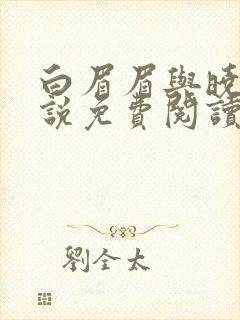 白眉眉與曉
說免費閱讀
劉全太